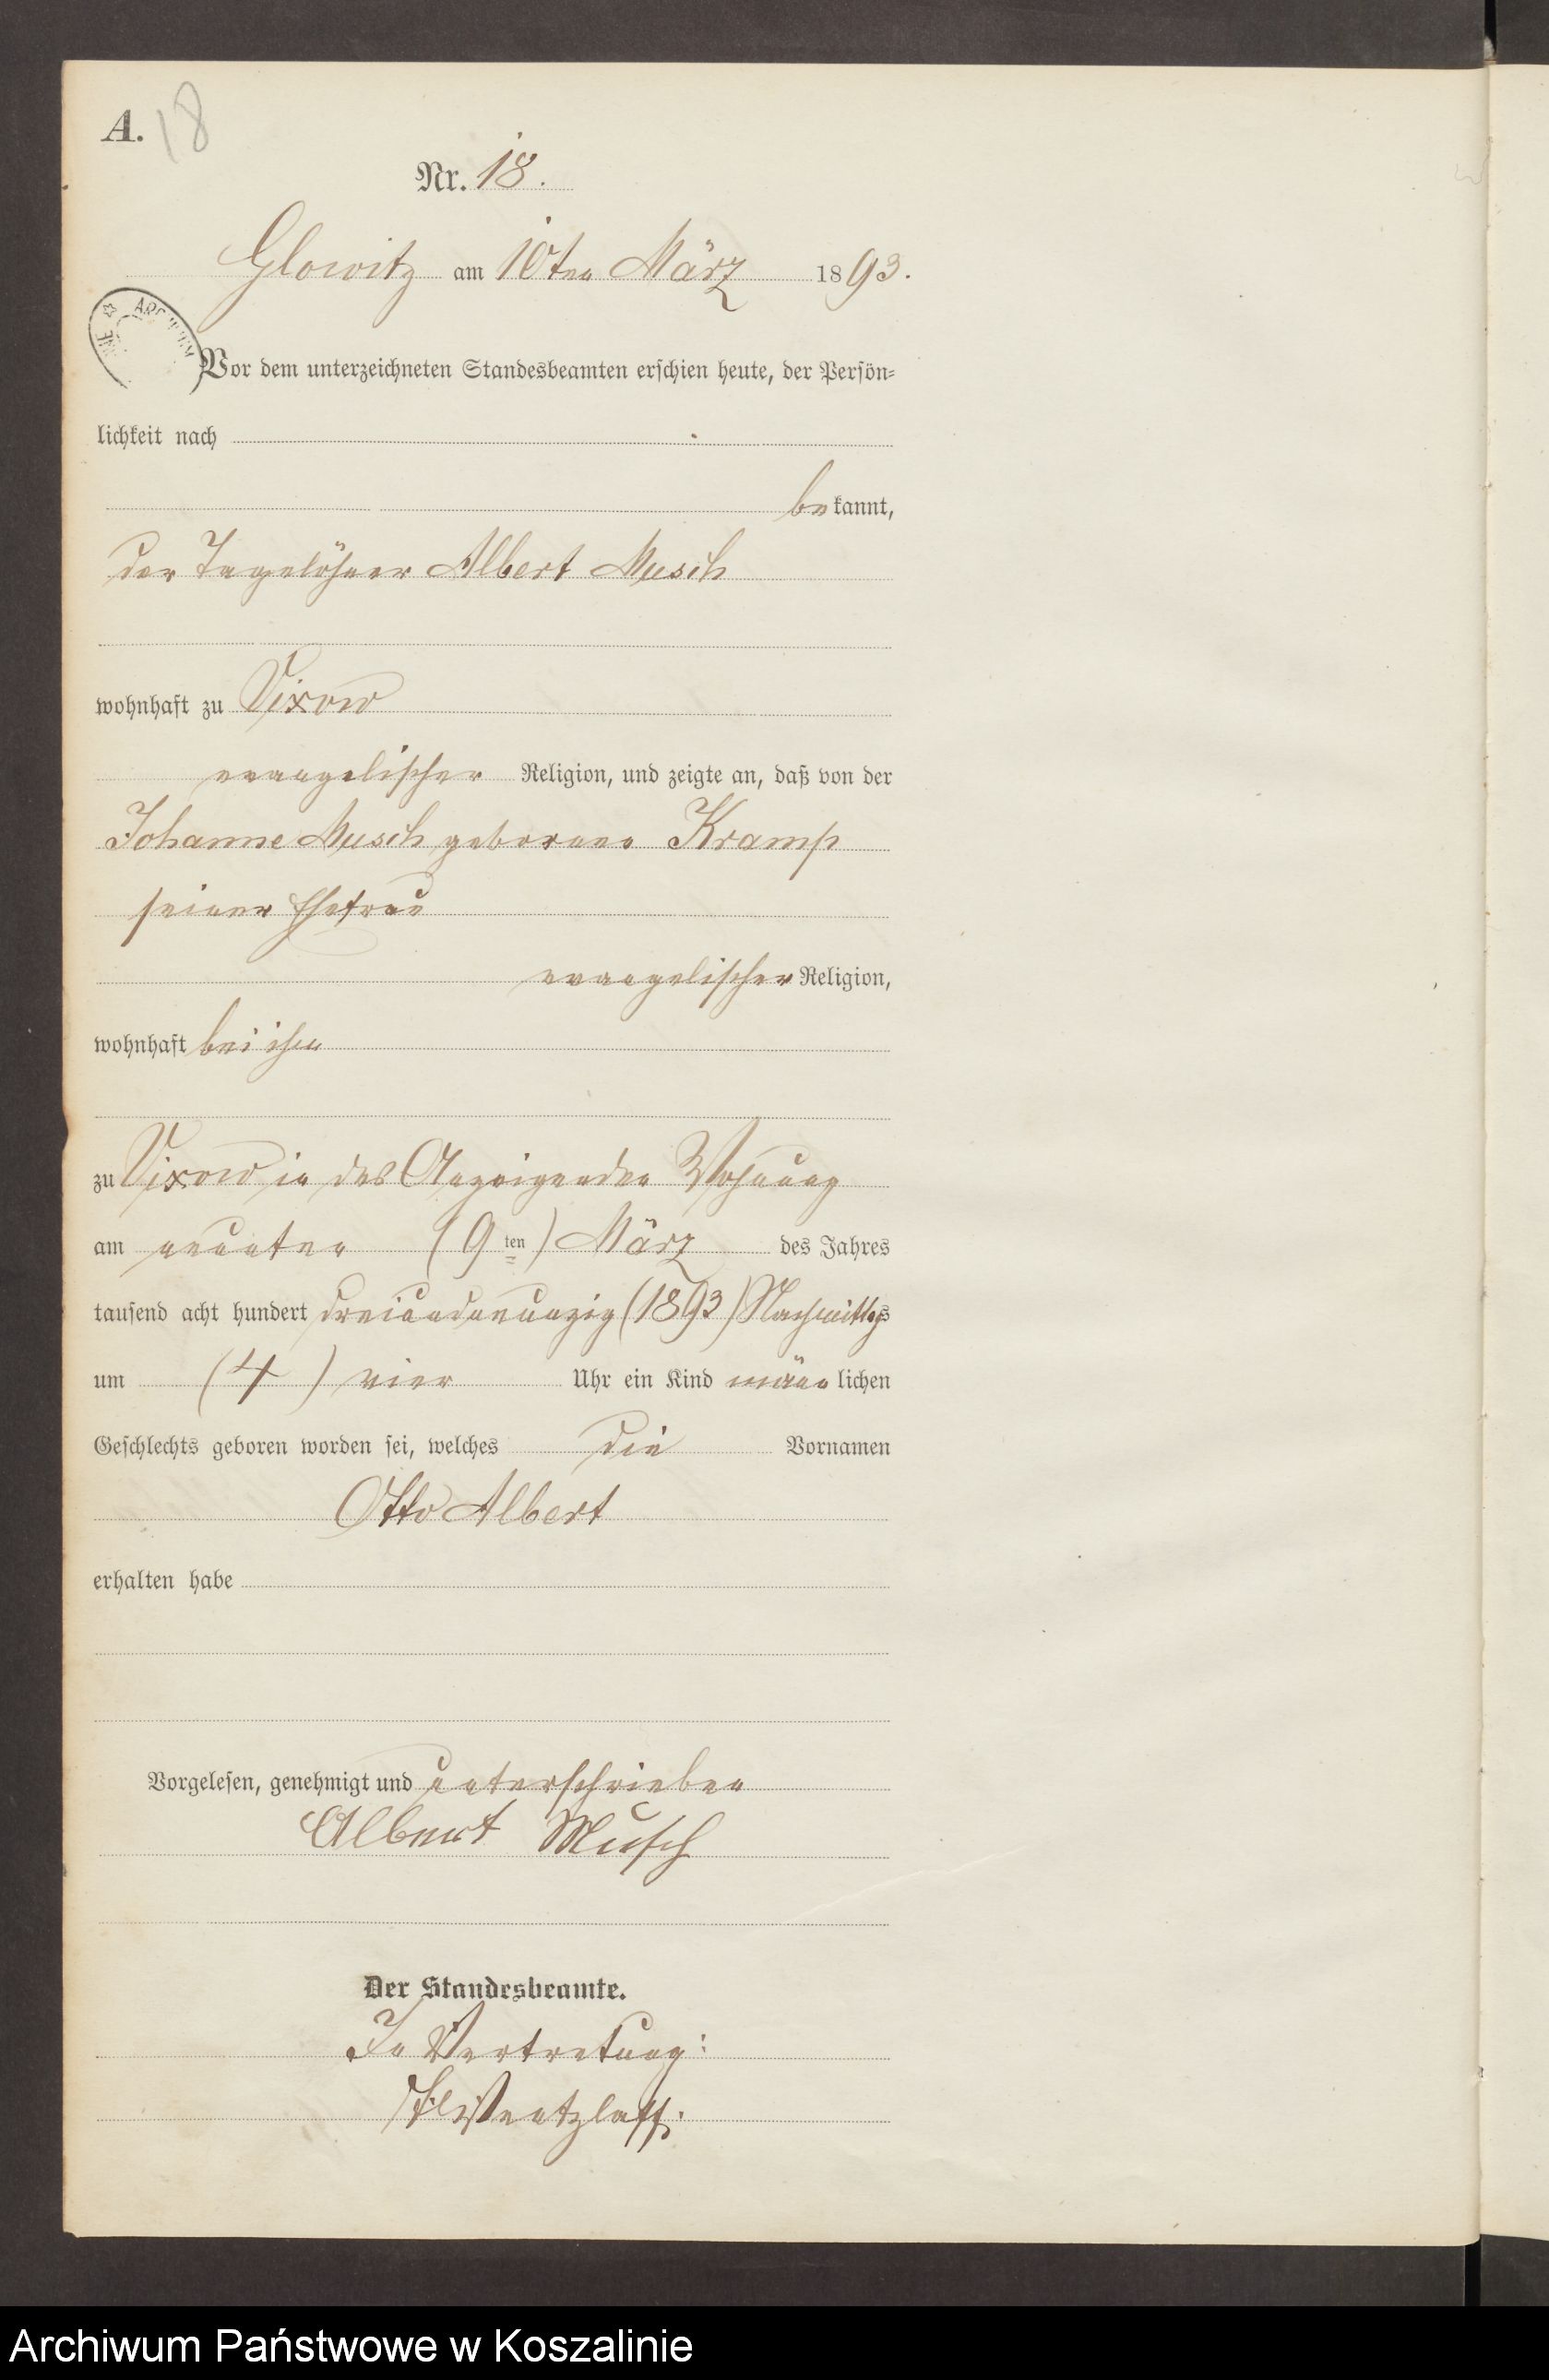 A. 18
Nr. 18.
Glowitz am 10ten März 1893.
ARCHIWUM
Vor dem unterzeichneten Standesbeamten erschien heute, der Persön-
lichkeit nach
bekannt,
der Tagelöhner Albert Musch
wohnhaft zu Vixow
evangelischer Religion, und zeigte an, daß von der
Johanne Musch geborene Kramp
seiner Ehefrau
evangelischer Religion,
wohnhaft bei ihm
zu Vixow in des Anzeigenden Wohnung
am neunten (9ten) März des Jahres
tausend acht hundert dreiundneunzig (1893) Nachmittags
um (4) vier Uhr ein Kind männlichen
Geschlechts geboren worden sei, welches die Vornamen
Otto Albert
erhalten habe
Vorgelesen, genehmigt und unterschrieben
Albert Musch
Der Standesbeamte.
In Vertretung:
Wentzlaff.
Archiwum Państwowe w Koszalinie